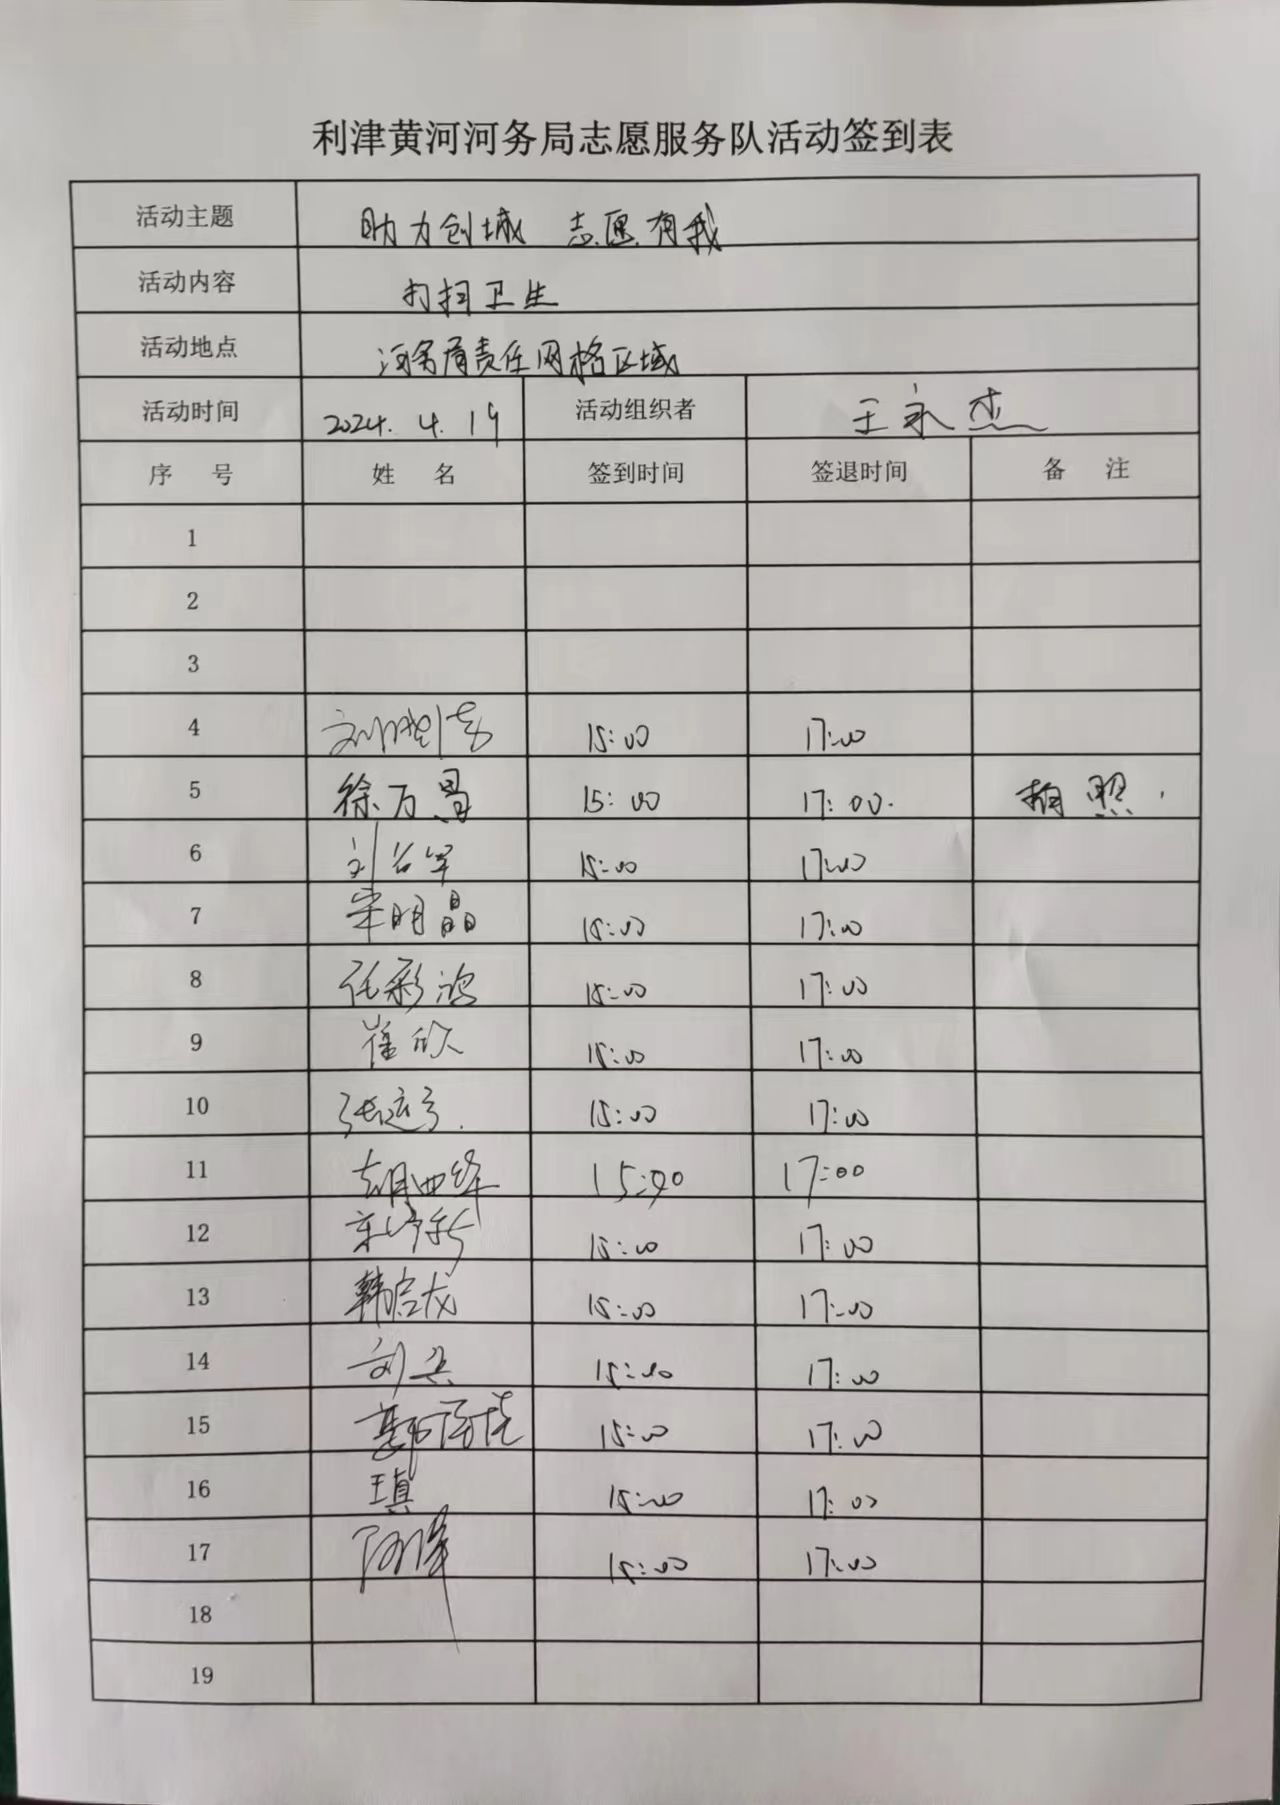 利津黄河河务局志愿服务队活动签到表
活动主题 助力创城 志愿有我
活动内容 打扫卫生
活动地点 河务局责任网格区域
活动时间 2024.4.19 活动组织者 王永杰
序 号 姓 名 签到时间 签退时间 备 注
1
2
3
4 15:00 17:00
5 徐万昌 15:00 17:00. 拍照.
6 15:00 17:00
7 宋明晶 15:00 17:00
8 任彩鸿 15:00 17:00
9 崔欣 15:00 17:00
10 15:00 17:00
11 17:00
12 15:00 17:00
13 韩启龙 15:00 17:00
14 刘兵 15:00 17:00
15 15:00 17:00
16 王真 15:00 17:00
17 15:00 17:00
18
19